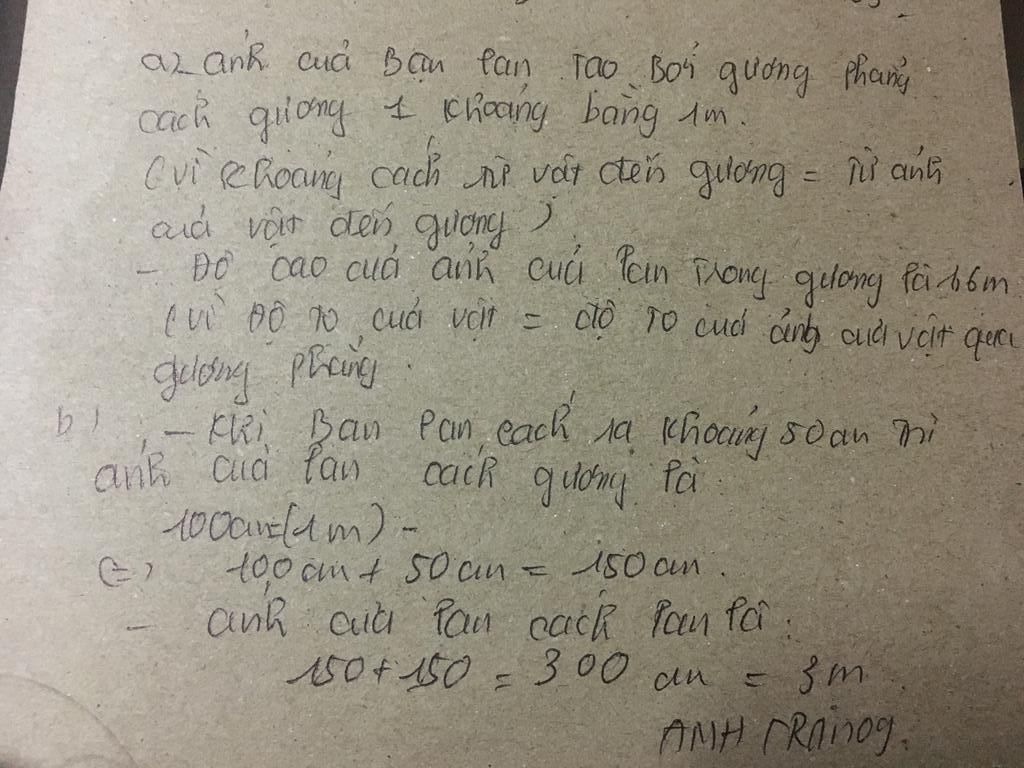 a, ảnh của Bạn Lan Tạo Bởi gương phẳng
cách gương 1 khoảng bằng 1m.
(vì khoảng cách từ vật đến gương = từ ảnh
của vật đến gương)
- Độ cao của ảnh của Lan Trong gương là 1,6m
(vì Độ To của vật = độ To của ảnh của vật qua
gương phẳng.
b) - Khi Bạn Lan cách xa khoảng 50cm thì
ảnh của Lan cách gương là:
100cm=(1m) -
(=) 100cm + 50cm = 150cm.
- ảnh của Lan cách Lan là:
150+150 = 300 cm = 3m